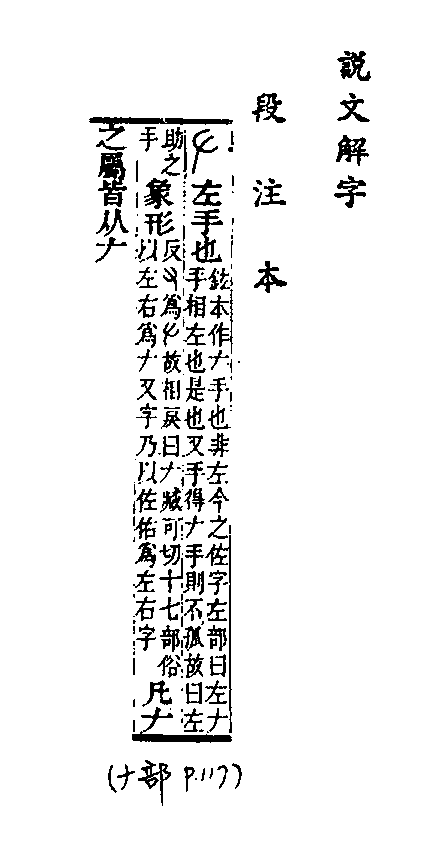 説文解字
段注本
𠂇
左手也
鉉本作𠂇手也非左今之佐字左部曰左𠂇
手相左也是也又手得𠂇手則不孤故曰左
助之
手
象形
反又爲𠂇故相戾曰𠂇臧可切十七部俗
以左右爲𠂇又字乃以佐佑爲左右字
凡𠂇
之屬皆从𠂇
(𠂇部 P.117)